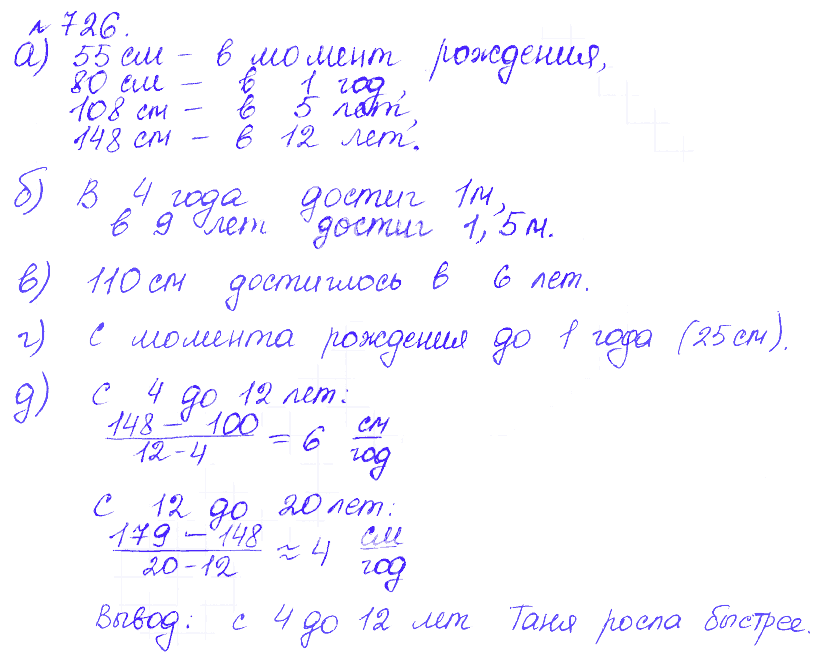 № 726.
а) 55 см – в момент рождения,
80 см – в 1 год,
108 см – в 5 лет,
148 см – в 12 лет.
б) В 4 года достиг 1м,
в 9 лет достиг 1,5м.
в) 110 см достиглось в 6 лет.
г) С момента рождения до 1 года (25 см).
д) С 4 до 12 лет:
148 – 100 / 12 - 4 = 6 см/год
С 12 до 20 лет:
179 – 148 / 20 - 12 ≈ 4 см/год
Вывод: с 4 до 12 лет Таня росла быстрее.